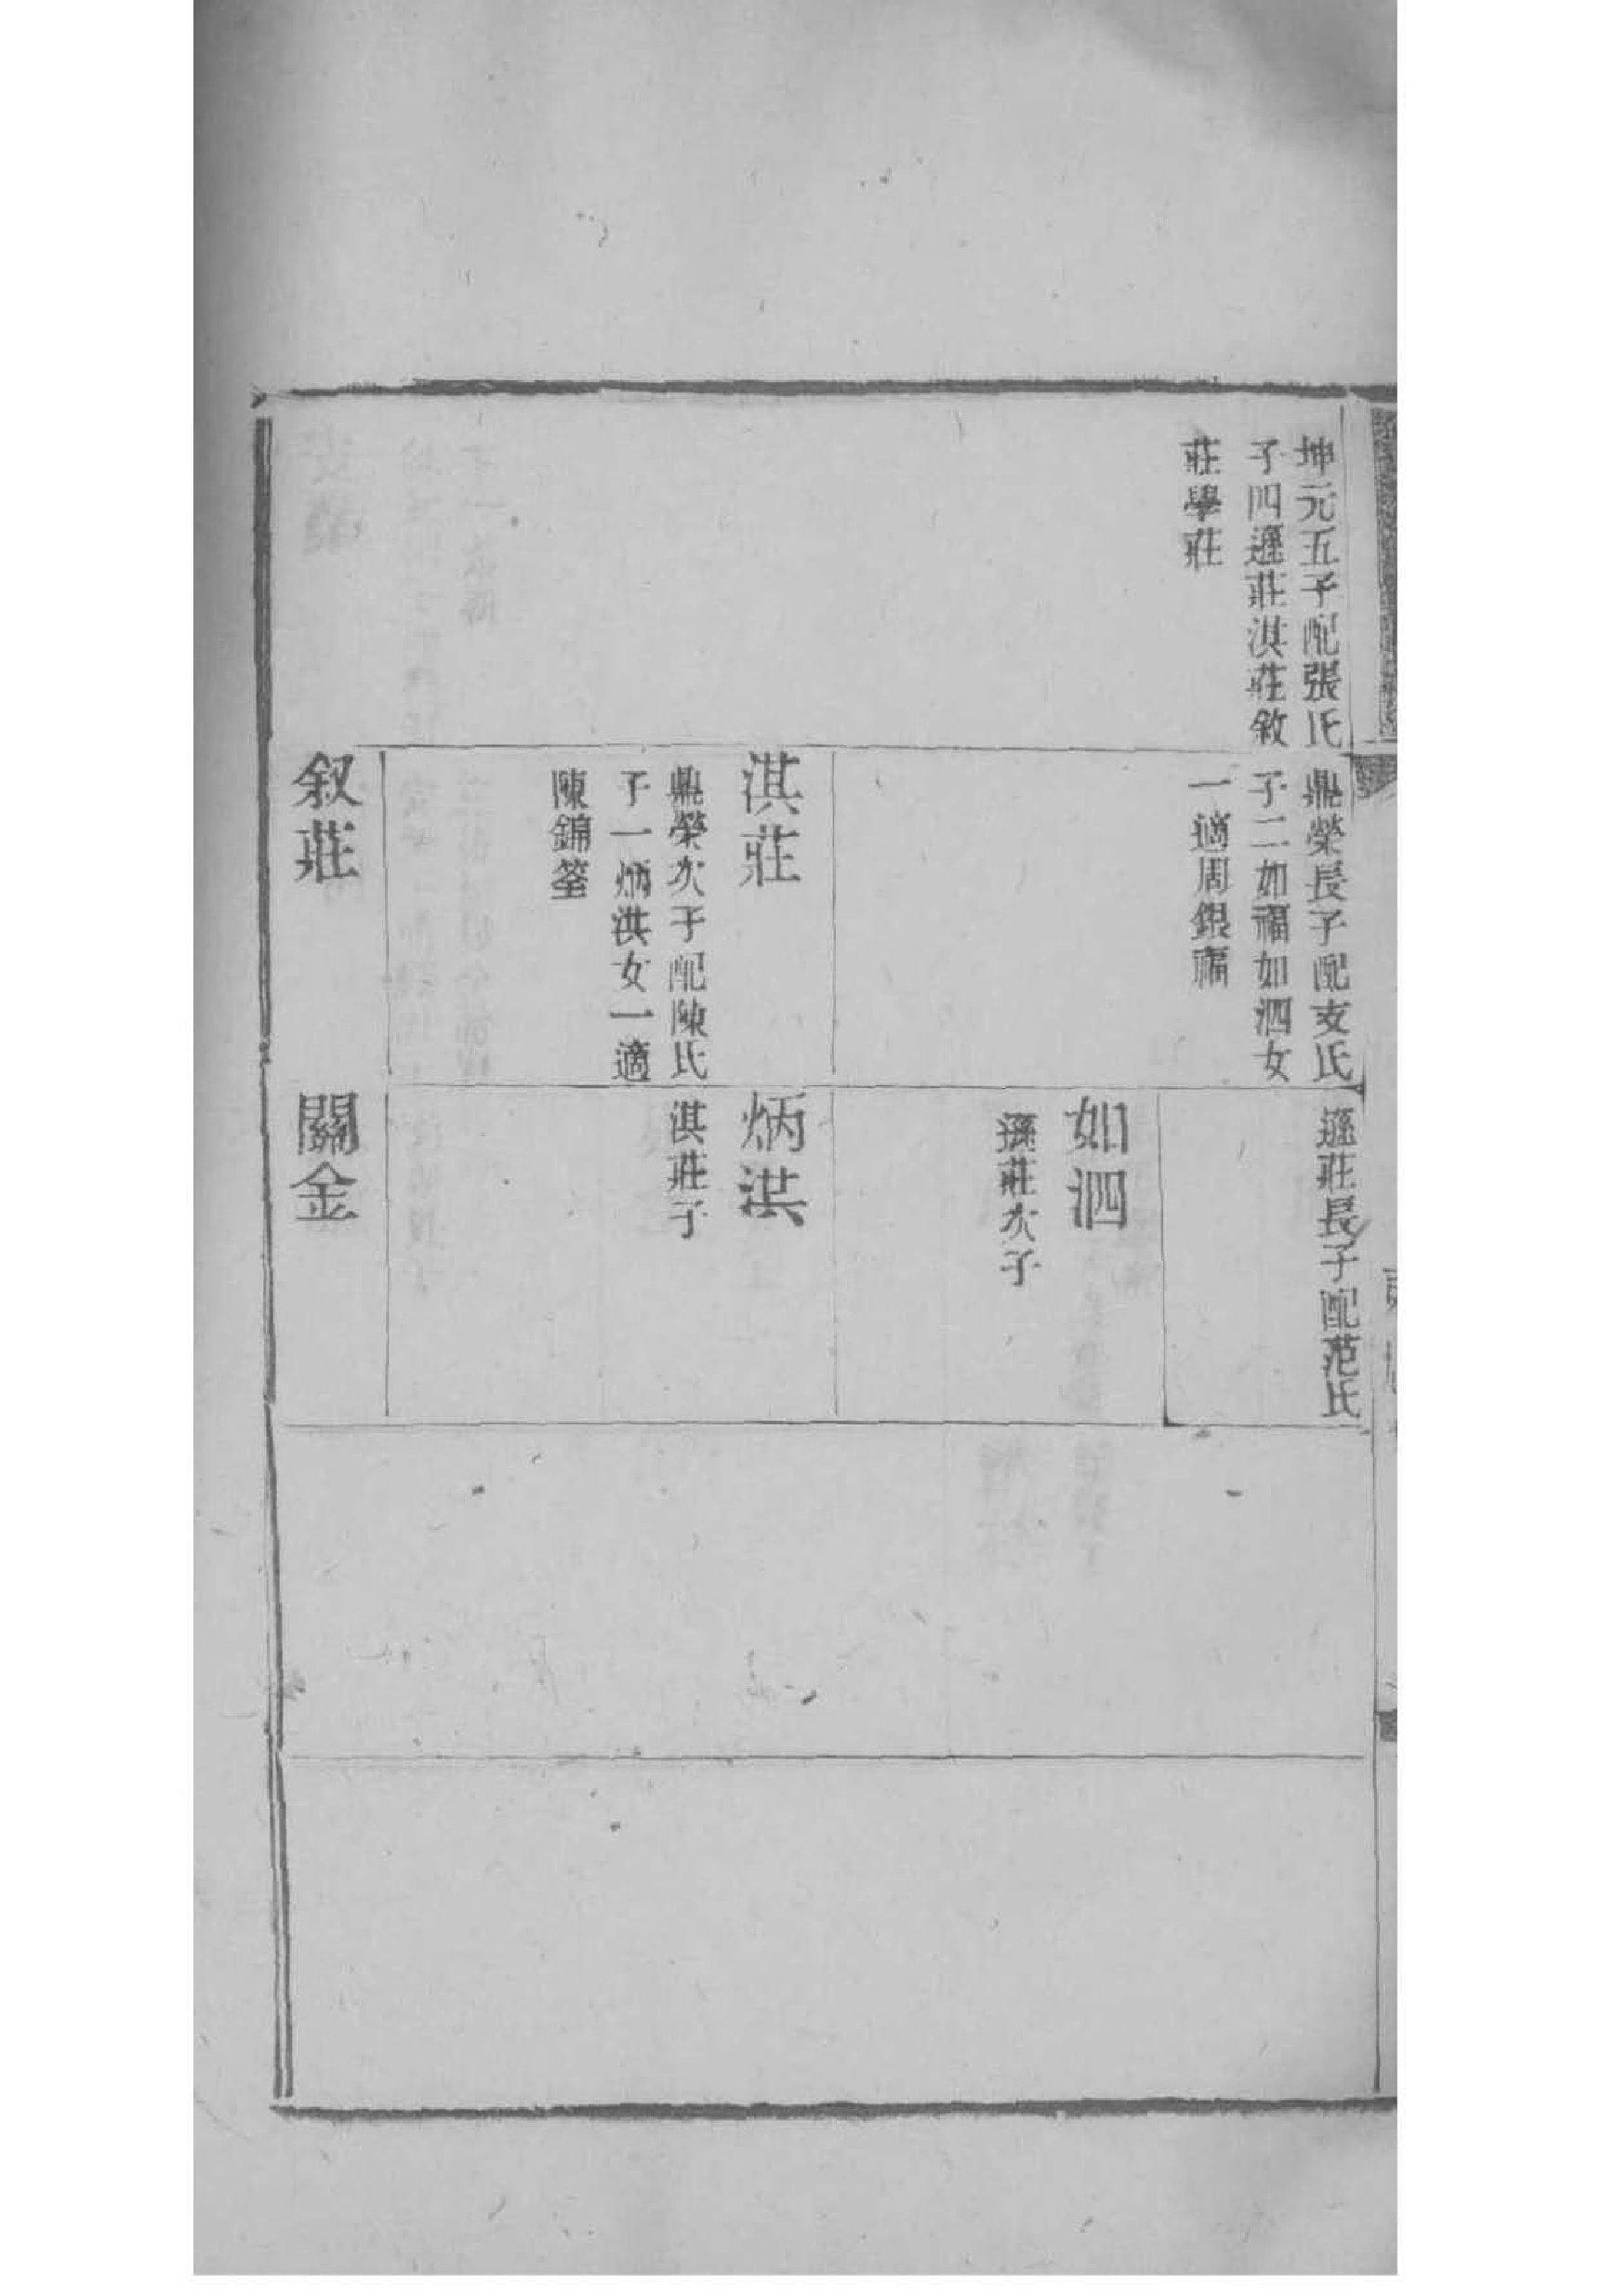 坤元五子配張氏
子四遜莊淇莊敘
莊學莊
鼎榮長子配支氏
子二如福如泗女
一適周銀福
淇莊
鼎榮次子配陳氏
子一炳洪女一適
陳錦筌
叙莊
遜莊長子配范氏
如泗
遜莊次子
炳洪
淇莊子
關金